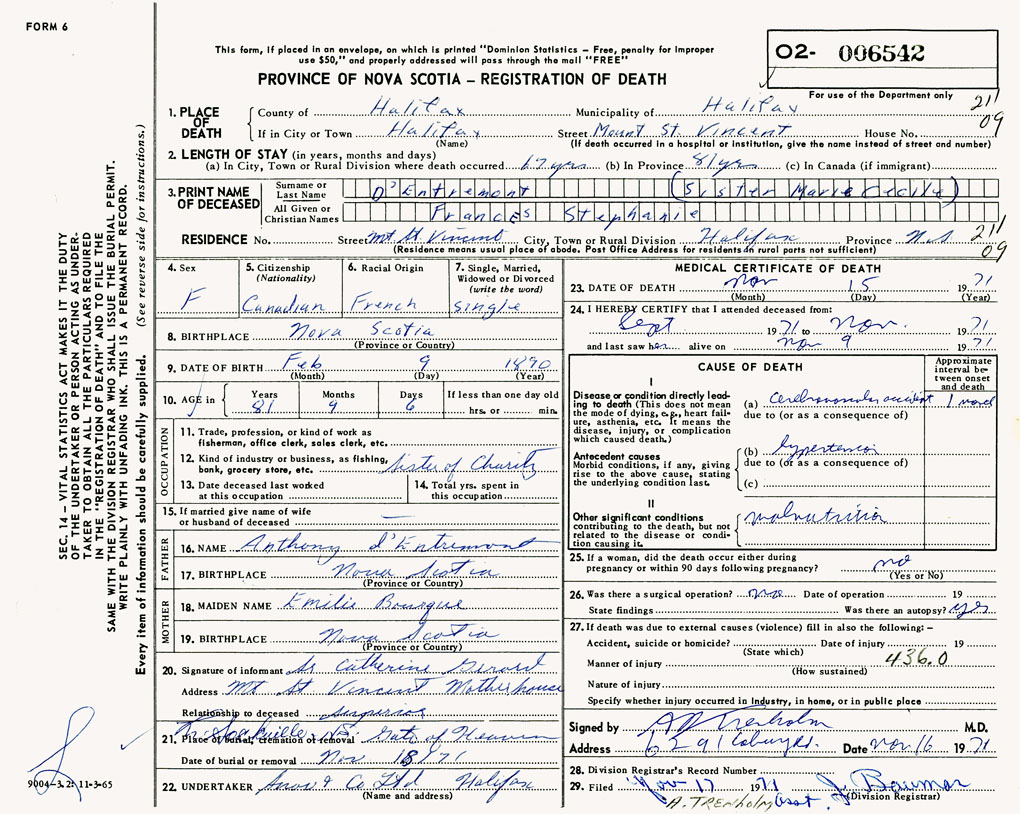 FORM 6
This form, if placed in an envelope, on which is printed "Dominion Statistics – Free, penalty for improper
use $50," and properly addressed will pass through the mail "FREE"
O2- 006542
PROVINCE OF NOVA SCOTIA – REGISTRATION OF DEATH
For use of the Department only
211
09
1. PLACE OF DEATH
County of Halifax Municipality of Halifax
If in City or Town Halifax Street Mount St. Vincent House No.
(Name) (If death occurred in a hospital or institution, give the name instead of street and number)
2. LENGTH OF STAY (in years, months and days)
(a) In City, Town or Rural Division where death occurred 17 yrs (b) In Province 81 yrs (c) In Canada (if immigrant)
3. PRINT NAME OF DECEASED
Surname or Last Name D'Entremont (Sister Marie Cecile)
All Given or Christian Names Frances Stephanie
RESIDENCE No. Street Mt St Vincent City, Town or Rural Division Halifax Province N.S
(Residence means usual place of abode. Post Office Address for residents in rural parts not sufficient)
211
09
4. Sex
F
5. Citizenship
(Nationality)
Canadian
6. Racial Origin
French
7. Single, Married,
Widowed or Divorced
(write the word)
single
8. BIRTHPLACE Nova Scotia
(Province or Country)
9. DATE OF BIRTH Feb 9 1890
(Month) (Day) (Year)
10. AGE in Years 81 Months 9 Days 6 If less than one day
hrs. or min.
OCCUPATION
11. Trade, profession, or kind of work as
fisherman, office clerk, sales clerk, etc.
12. Kind of industry or business, as fishing,
bank, grocery store, etc. Sister of Charity
13. Date deceased last worked
at this occupation
14. Total yrs. spent in
this occupation
15. If married give name of wife
or husband of deceased —
FATHER
16. NAME Anthony d'Entremont
17. BIRTHPLACE Nova Scotia
(Province or Country)
MOTHER
18. MAIDEN NAME Emilie Bourque
19. BIRTHPLACE Nova Scotia
(Province or Country)
20. Signature of informant Sr Catherine Girard
Address Mt St Vincent Motherhouse
Relationship to deceased Superior
21. Place of burial, cremation or removal Gate of Heaven
Sackville N.S.
Date of burial or removal Nov 18/71
22. UNDERTAKER Snow & Co Ltd Halifax
(Name and address)
MEDICAL CERTIFICATE OF DEATH
23. DATE OF DEATH Nov 15 1971
(Month) (Day) (Year)
24. I HEREBY CERTIFY that I attended deceased from:
Sept 1971 to Nov. 1971
and last saw her alive on Nov 9 1971
CAUSE OF DEATH
Approximate
interval be-
tween onset
and death
I
Disease or condition directly lead-
ing to death (This does not mean
the mode of dying, e.g., heart fail-
ure, asthenia, etc. It means the
disease, injury, or complication
which caused death.)
(a) Cerebrovascular accident
due to (or as a consequence of)
Antecedent causes
Morbid conditions, if any, giving
rise to the above cause, stating
the underlying condition last.
(b) hypertension
due to (or as a consequence of)
(c)
II
Other significant conditions
contributing to the death, but not
related to the disease or condi-
tion causing it.
malnutrition
25. If a woman, did the death occur either during
pregnancy or within 90 days following pregnancy? no
(Yes or No)
26. Was there a surgical operation? no Date of operation 19
State findings Was there an autopsy? yes
27. If death was due to external causes (violence) fill in also the following:–
Accident, suicide or homicide? Date of injury 19
(State which)
436.0
Manner of injury
(How sustained)
Nature of injury
Specify whether injury occurred in industry, in home, or in public place
Signed by A R Trenholm M.D.
Address 6291 Coburg Rd. Date Nov. 16 1971
28. Division Registrar's Record Number
29. Filed Nov 17 1971 J. Baumar
(Division Registrar)
A. TRENHOLM Asst.
SEC. 14 – VITAL STATISTICS ACT MAKES IT THE DUTY
OF THE UNDERTAKER OR PERSON ACTING AS UNDER-
TAKER TO OBTAIN ALL THE PARTICULARS REQUIRED
IN THE "REGISTRATION OF DEATH" AND TO FILE THE
SAME WITH THE DIVISION REGISTRAR WHO SHALL ISSUE THE BURIAL PERMIT.
WRITE PLAINLY WITH UNFADING INK. THIS IS A PERMANENT RECORD.
Every item of information should be carefully supplied. (See reverse side for instructions.)
9004-3.2: 11-3-65